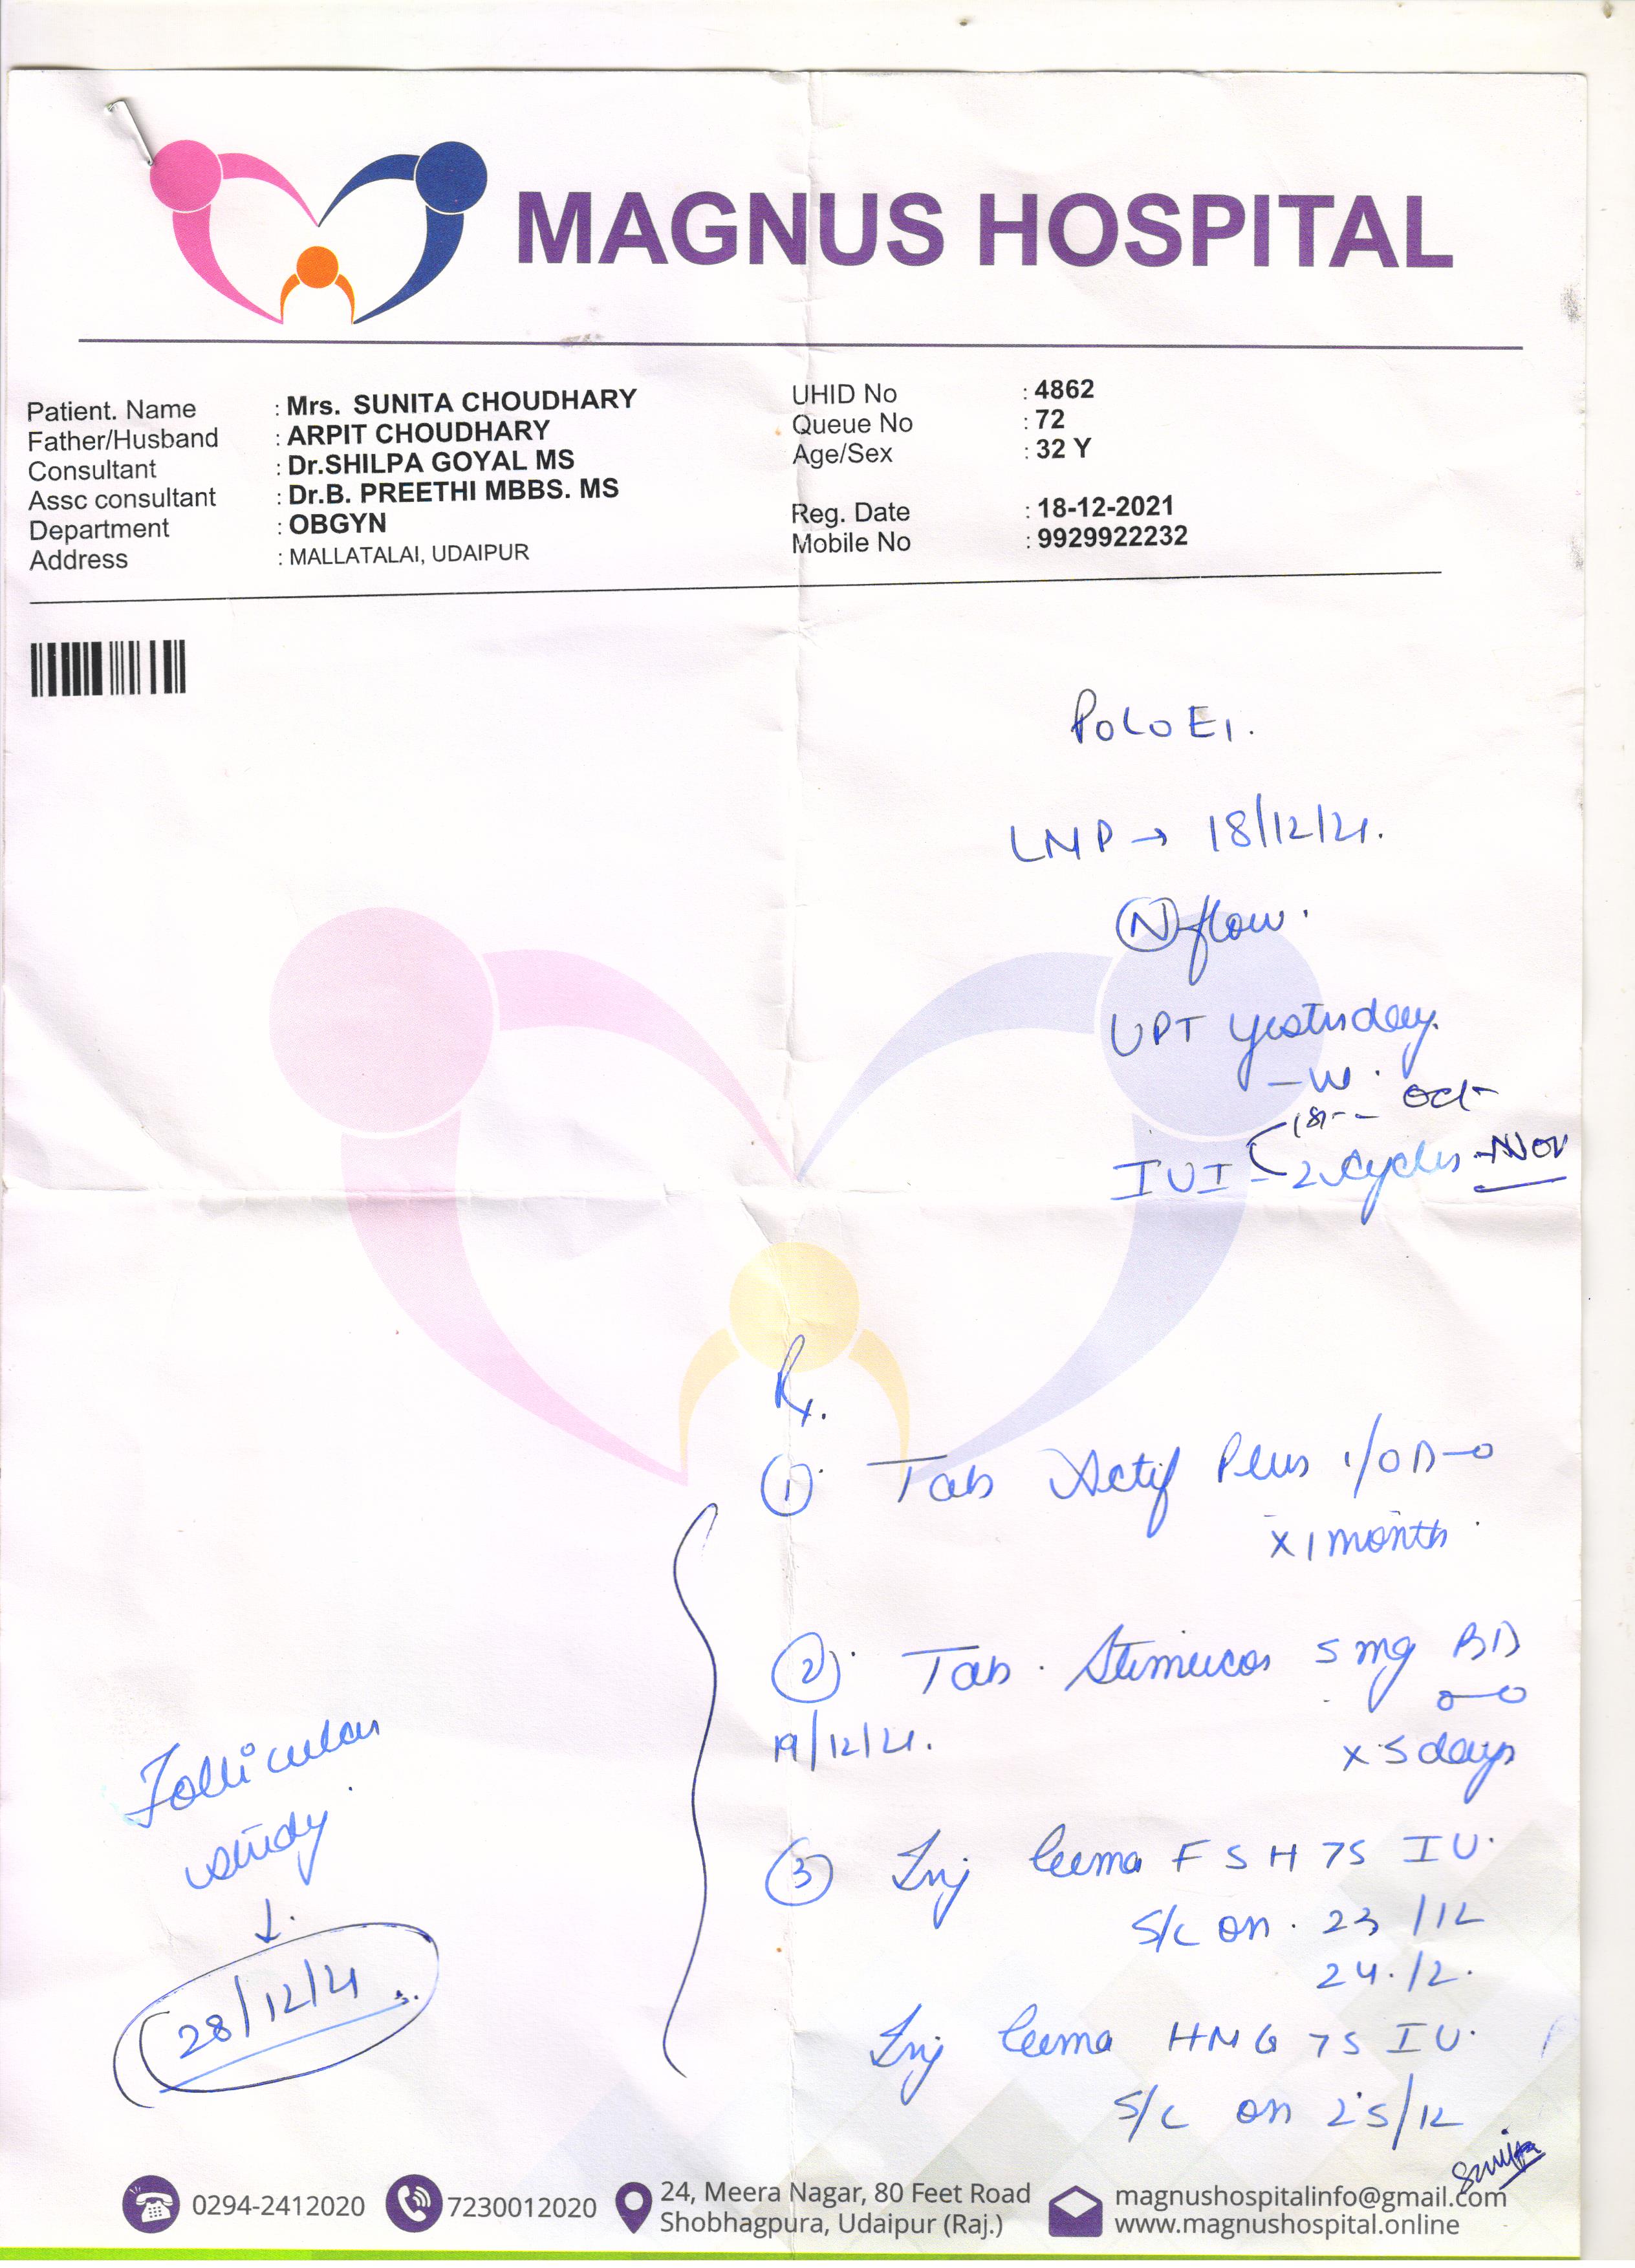 MAGNUS HOSPITAL
Patient. Name : Mrs. SUNITA CHOUDHARY
Father/Husband : ARPIT CHOUDHARY
Consultant : Dr.SHILPA GOYAL MS
Assc consultant : Dr.B. PREETHI MBBS. MS
Department : OBGYN
Address : MALLATALAI, UDAIPUR
UHID No : 4862
Queue No : 72
Age/Sex : 32 Y
Reg. Date : 18-12-2021
Mobile No : 9929922232
P0L0E1.
LMP → 18/12/21.
N flow.
UPT yesterday.
Oct
IUI - 2 cycles - Nov
Rx.
1. Tab Actif Plus 1/OD
x 1 month
2. Tab. 5 mg BD
19/12/21.
x 5 days
3 Inj FSH 75 IU.
S/C on. 23/12
24/12.
Inj HMG 75 IU.
S/C on 25/12
Follicular
study
↓
28/12/21
Sunita
0294-2412020
7230012020
24, Meera Nagar, 80 Feet Road
Shobhagpura, Udaipur (Raj.)
magnushospitalinfo@gmail.com
www.magnushospital.online